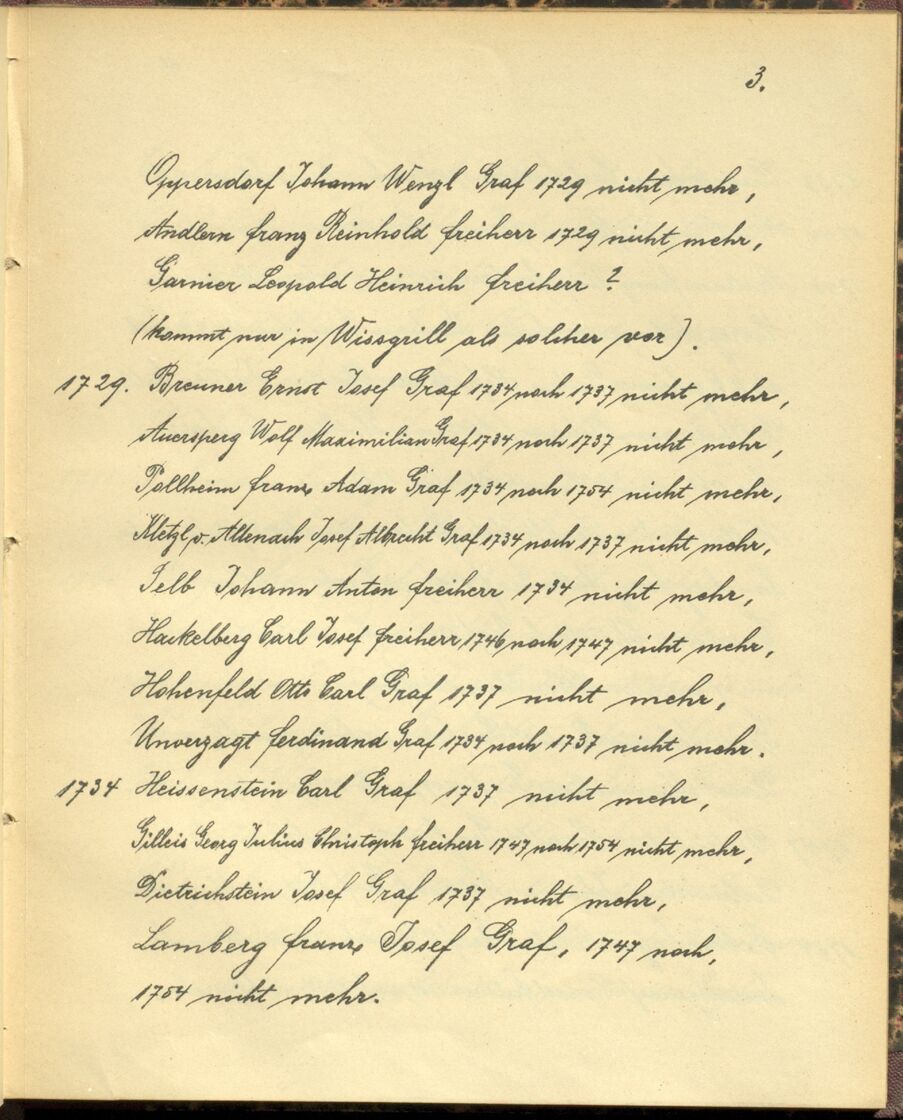 3.
Oppersdorf Johann Wenzl Graf 1729 nicht mehr,
Andlern franz Reinhold freiherr 1729 nicht mehr,
Garnier Leopold Heinrich freiherr ?
(kommt nur in Wissgrill als solcher vor).
1729. Breuner Ernst Josef Graf 1734 noch 1737 nicht mehr,
Auersperg Wolf Maximilian Graf 1734 noch 1737 nicht mehr,
Pollheim franz Adam Graf 1734 noch 1754 nicht mehr,
Kletzl v. Altenach Josef Albrecht Graf 1734 noch 1737 nicht mehr,
Selb Johann Anton freiherr 1734 nicht mehr,
Hackelberg Carl Josef freiherr 1746 noch 1747 nicht mehr,
Hohenfeld Otto Carl Graf 1737 nicht mehr,
Unverzagt ferdinand Graf 1734 noch 1737 nicht mehr.
1734 Heissenstein Carl Graf 1737 nicht mehr,
Gilleis Georg Julius Christoph freiherr 1747 noch 1754 nicht mehr,
Dietrichstein Josef Graf 1737 nicht mehr,
Lamberg franz Josef Graf, 1747 noch,
1754 nicht mehr.